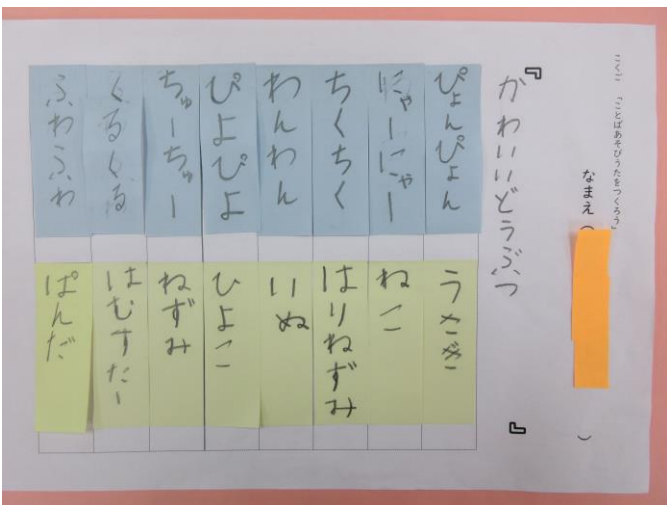 こくご 「ことばあそびうたをつくろう」
なまえ（ ）
『かわいいどうぶつ』
ぴょんぴょん うさぎ
にゃーにゃー ねこ
ちくちく はりねずみ
わんわん いぬ
ぴよぴよ ひよこ
ちゅーちゅー ねずみ
くるくる はむすたー
ふわふわ ぱんだ